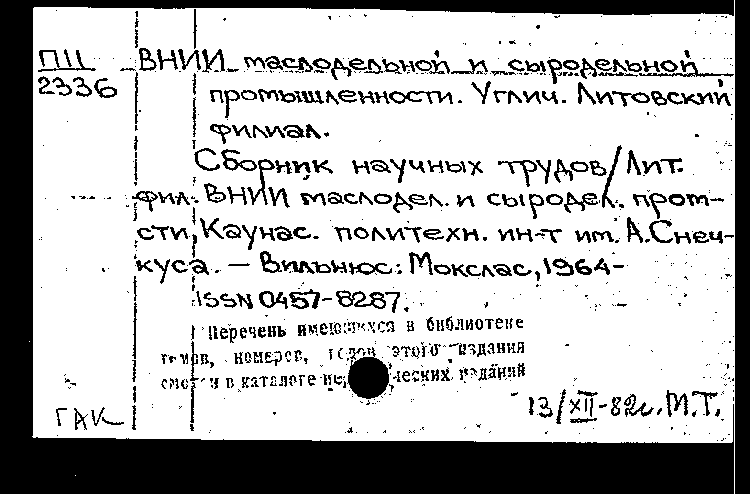 П11 ВНИИ маслодельной и сыродельной
2336 промышленности. Углич. Литовский
филиал.
Сборник научных трудов/Лит.
фил. ВНИИ маслодел. и сыродел. пром-
сти, Каунас. политехн. ин-т им. А.Снеч-
куса. – Вильнюс: Мокслас, 1964-
ISSN 0457-8287.
Перечень имеющихся в библиотеке
томов, номеров, годов этого издания
смотри в каталоге изданий
13/XII-82г. М.Т.
ГАК